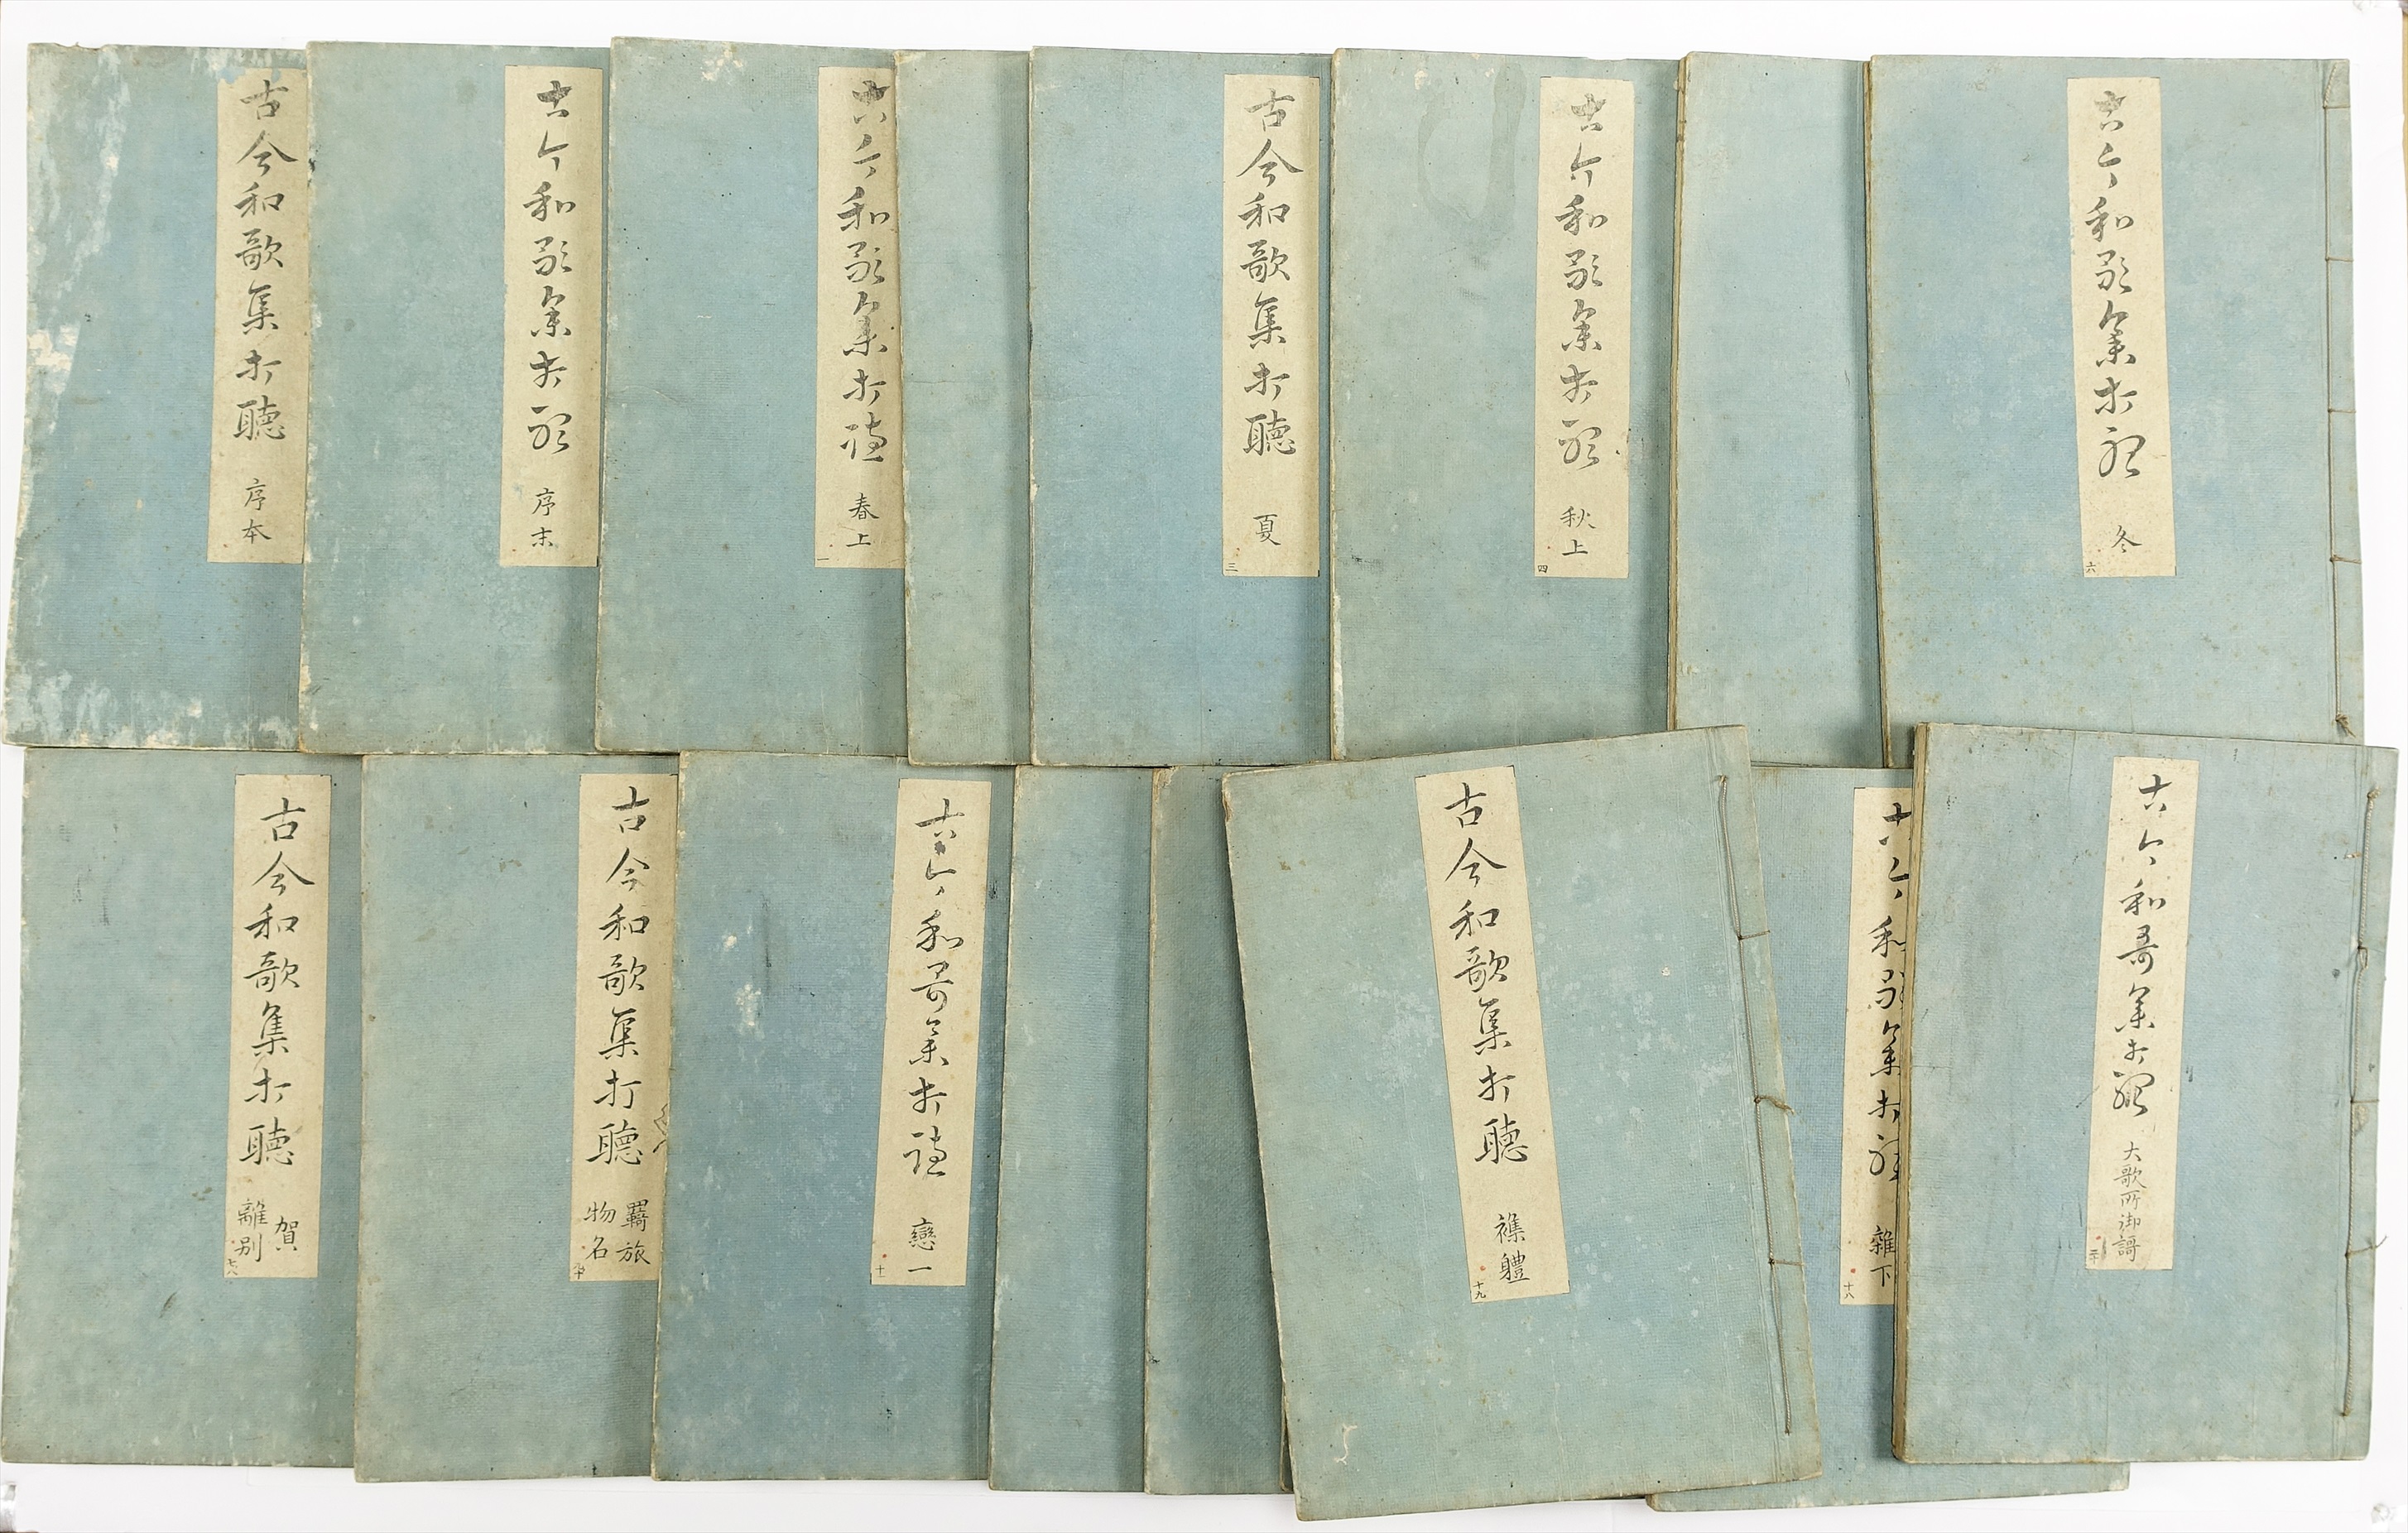 古今和歌集打聴
序本
古今和歌集打聴
序末
古今和歌集打聴
春上
一
古今和歌集打聴
夏
三
古今和歌集打聴
秋上
四
古今和歌集打聴
冬
六
古今和歌集打聴
賀
離別
七八
古今和歌集打聴
羇旅
物名
九十
古今和哥集打聴
戀一
十一
古今和歌集打聴
襍體
十九
古今和歌集打聴
雜下
十八
古今和哥集打聴
大歌所御謌
二十